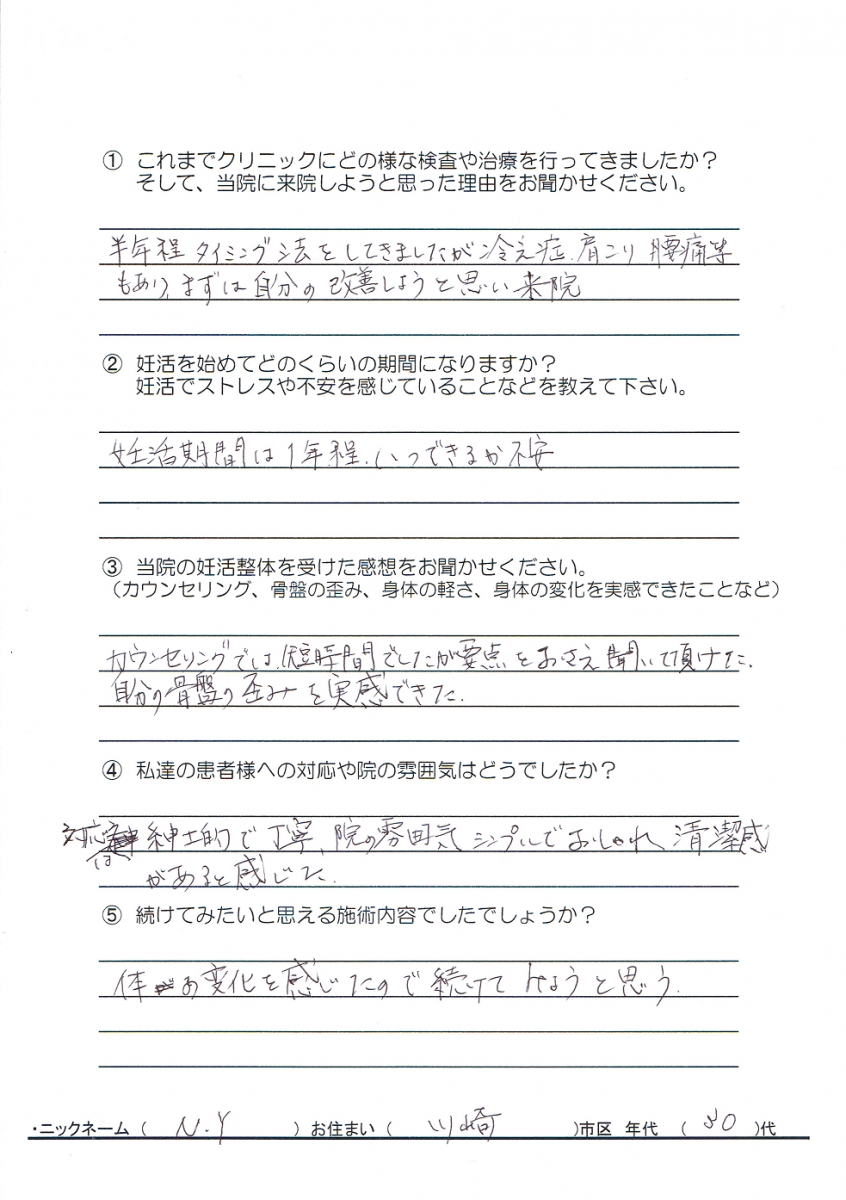 ① これまでクリニックにどの様な検査や治療を行ってきましたか？
そして、当院に来院しようと思った理由をお聞かせください。
半年程 タイミング法をしてきましたが冷え症、肩こり 腰痛等
もあり、まずは自分の改善しようと思い来院
② 妊活を始めてどのくらいの期間になりますか？
妊活でストレスや不安を感じていることなどを教えて下さい。
妊活期間は1年程、いつできるか不安
③ 当院の妊活整体を受けた感想をお聞かせください。
（カウンセリング、骨盤の歪み、身体の軽さ、身体の変化を実感できたことなど）
カウンセリングでは、短時間でしたが要点をおさえ聞いて頂けた。
自分の骨盤の歪みを実感できた。
④ 私達の患者様への対応や院の雰囲気はどうでしたか？
対応は 紳士的で丁寧、院の雰囲気 シンプルでおしゃれ 清潔感
があると感じた。
⑤ 続けてみたいと思える施術内容でしたでしょうか？
体の変化を感じたので続けてみようと思う。
・ニックネーム（ N.Y ）お住まい（ 川崎 ）市区 年代 （ 30 ）代